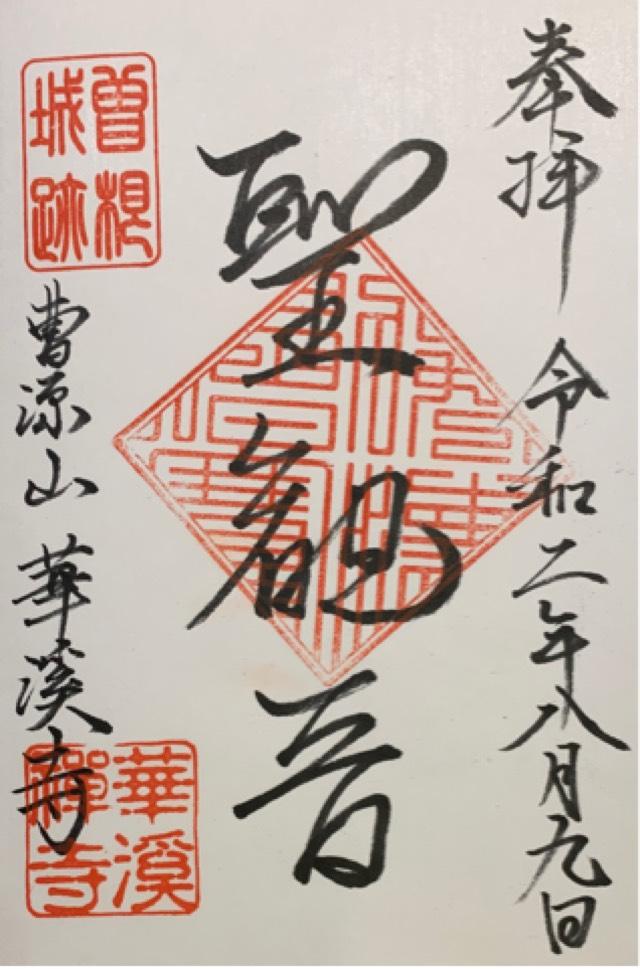 奉拝 令和二年八月九日
聖観音
曽根
城跡
曹源山 華溪寺
華溪
禅寺